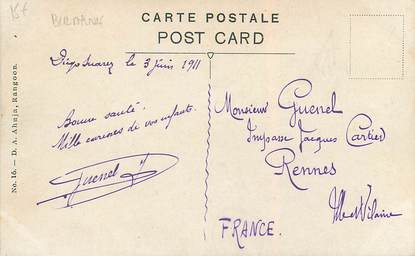 15€
BIRMANIE
CARTE POSTALE
POST CARD
Diégo Suarez le 3 juin 1911
Bonne santé.
Mille caresses de vos enfants.
Guenel
Monsieur Guenel
Impasse Jacques Cartier
Rennes
Ille et Vilaine
FRANCE.
No. 16. – D. A. Ahuja, Rangoon.